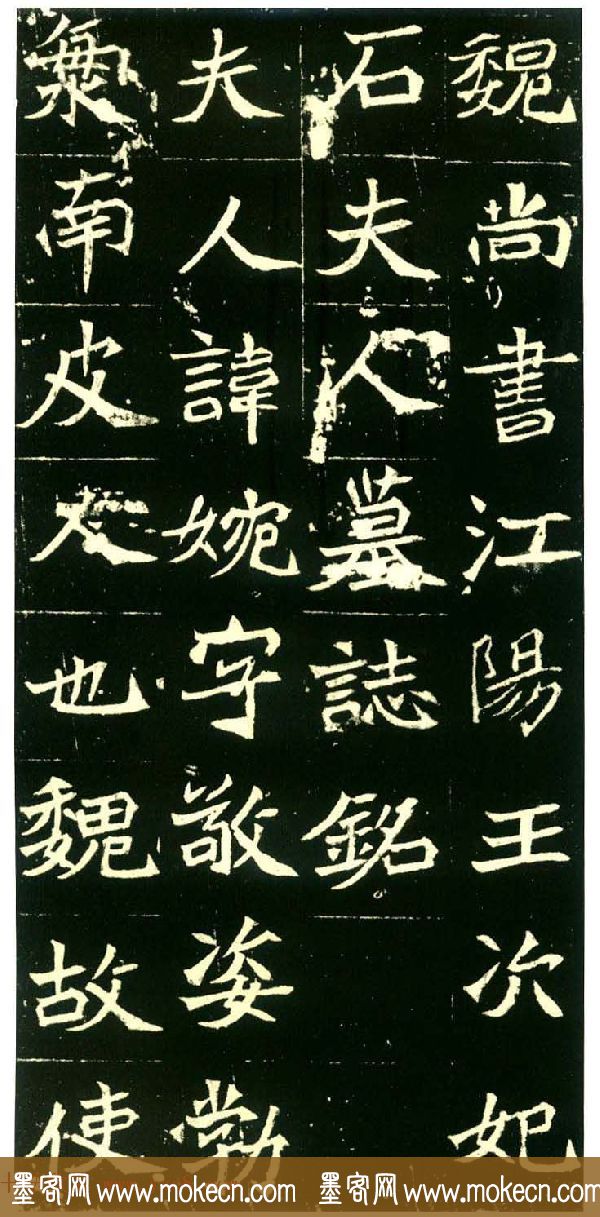 魏尚書江陽王次妃
石夫人墓誌銘
夫人諱婉字敬姿勃
海南皮人也魏故使
墨客网 www.mokecn.com 墨客网 www.mokecn.com